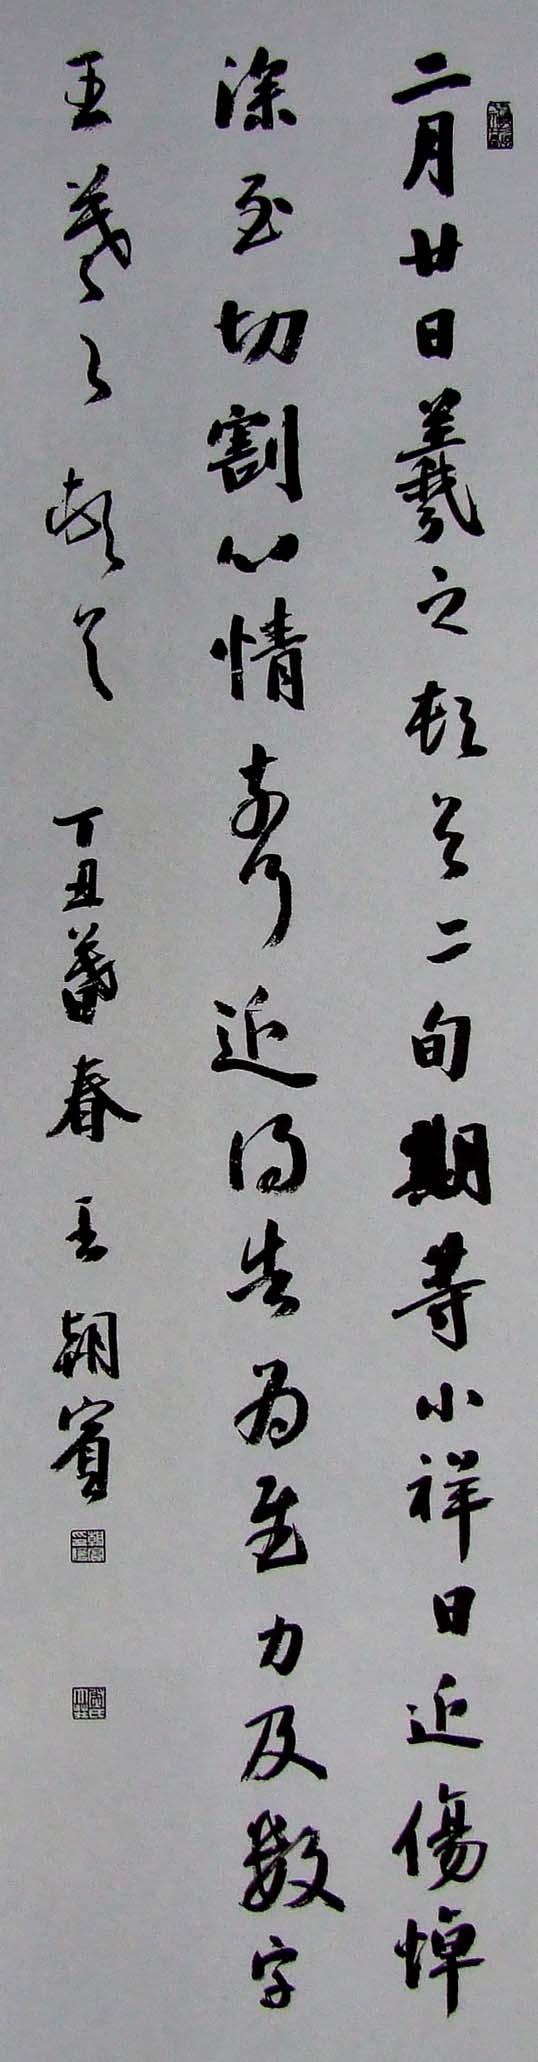 二月廿日羲之頓首二旬期等小祥日近傷悼
深至切割心情奈何近得告為慰力及數字
王羲之頓首 丁丑暮春王朝賓